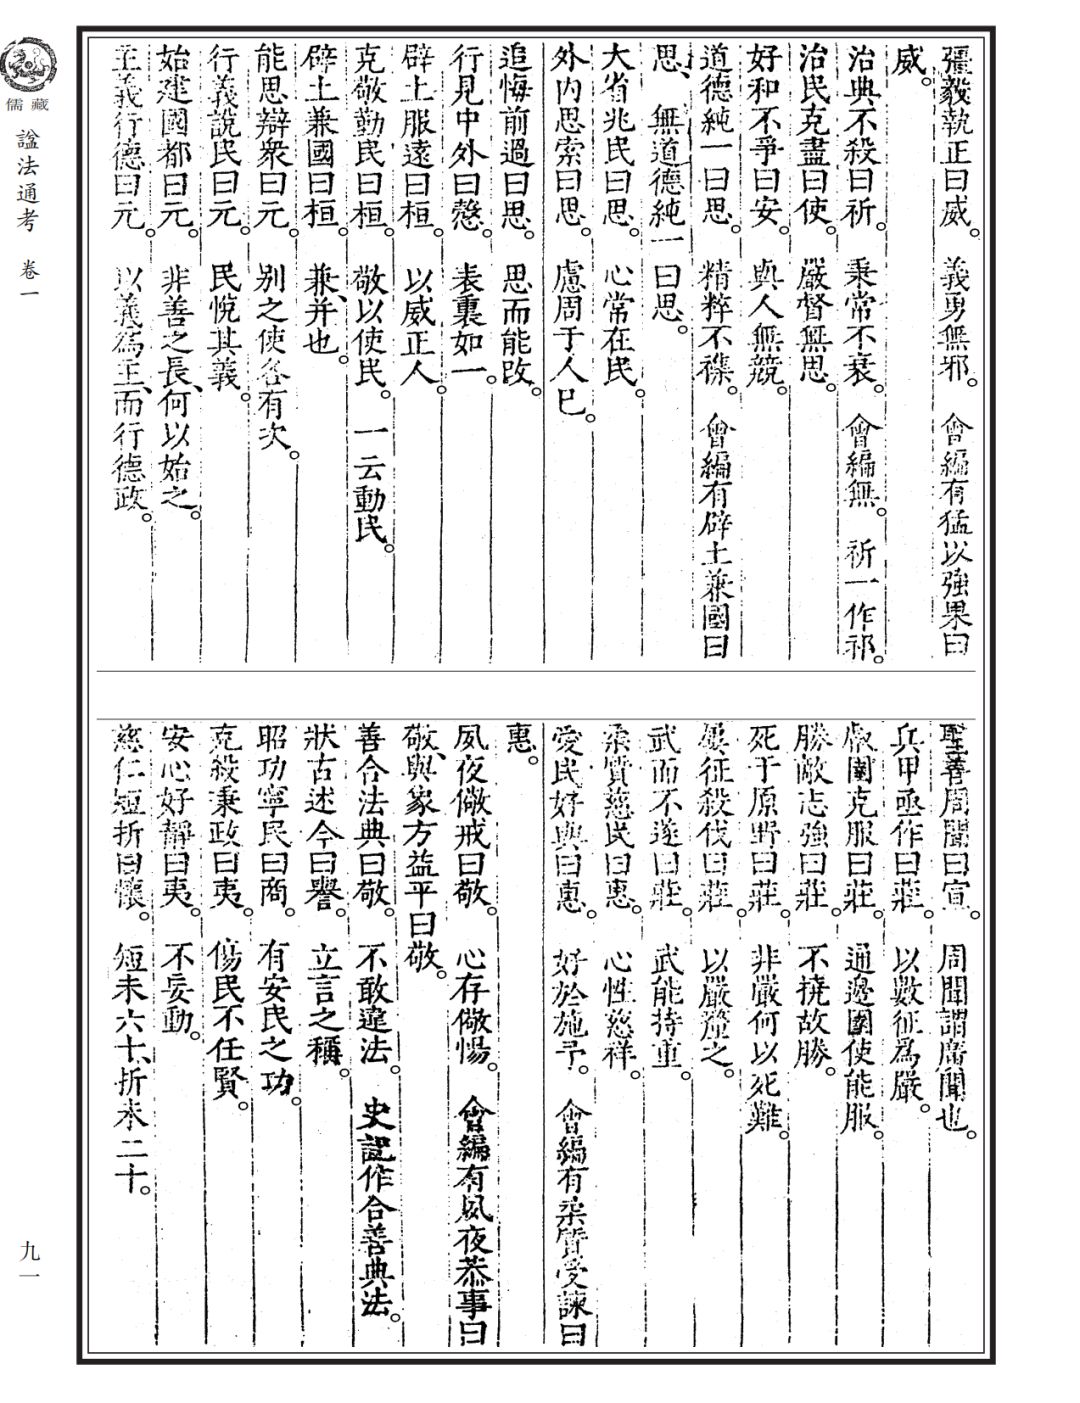 彊毅執正曰威。　義勇無邪。　會編有猛以強果曰
威。
治典不殺曰祈。　秉常不衰。　會編無。　祈一作祁。
治民克盡曰使。　嚴督無思。
好和不爭曰安。　與人無競。
道德純一曰思。　精粹不襍。　會編有辟土兼國曰
思、無道德純一曰思。
大省兆民曰思。　心常在民。
外内思索曰思。　慮周于人巳。
追悔前過曰思。　思而能改。
行見中外曰愨。　表裏如一。
辟土服遠曰桓。　以威正人。
克敬勤民曰桓。　敬以使民。　一云動民。
辟土兼國曰桓。　兼、并也。
能思辯衆曰元。　别之使各有次。
行義說民曰元。　民悅其義。
始建國都曰元。　非善之長、何以始之。
主義行德曰元。　以義爲主、而行德政。
聖善周聞曰宣。　周聞謂廣聞也。
兵甲亟作曰莊。　以數征爲嚴。
叡圉克服曰莊。　通邊圉使能服。
勝敵志強曰莊。　不撓故勝。
死于原野曰莊。　非嚴何以死難。
屢征殺伐曰莊。　以嚴釐之。
武而不遂曰莊。　武能持重。
柔質慈民曰惠。　心性慈祥。
愛民好與曰惠。　好於施予。　會編有柔質受諫曰
惠。
夙夜儆戒曰敬。　心存儆惕。　會編有夙夜恭事曰
敬、與象方益平曰敬。
善合法典曰敬。　不敢違法。　史記作合善典法。
狀古述今曰譽。　立言之稱。
昭功寧民曰商。　有安民之功。
克殺秉政曰夷。　傷民不任賢。
安心好靜曰夷。　不妄動。
慈仁短折曰懷。　短未六十、折未二十。
儒藏
諡法通考　卷一
九一